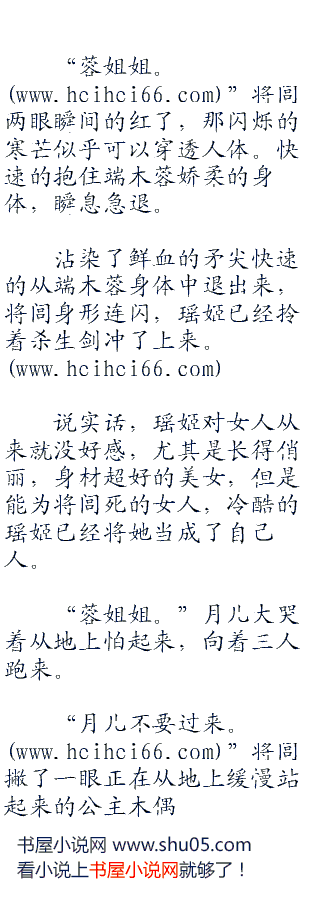 “蓉姐姐。
(www.hcihci66.com)”将闾
两眼瞬间的红了，那闪烁的
寒芒似乎可以穿透人体。快
速的抱住端木蓉娇柔的身
体，瞬息急退。
沾染了鲜血的矛尖快速
的从端木蓉身体中退出来，
将闾身形连闪，瑶姬已经拎
着杀生剑冲了上来。
(www.hcihci66.com)
说实话，瑶姬对女人从
来就没好感，尤其是长得俏
丽，身材超好的美女，但是
能为将闾死的女人，冷酷的
瑶姬已经将她当成了自己
人。
“蓉姐姐。”月儿大哭
着从地上怕起来，向着三人
跑来。
“月儿不要过来。
(www.hcihci66.com)”将闾
撇了一眼正在从地上缓慢站
起来的公主木偶
书屋小说网 www.shu05.com
看小说上书屋小说网就够了！